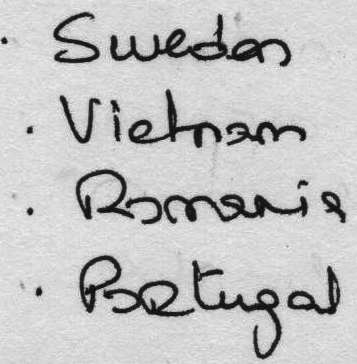 · Sweden
· Vietnam
· Romania
· Portugal